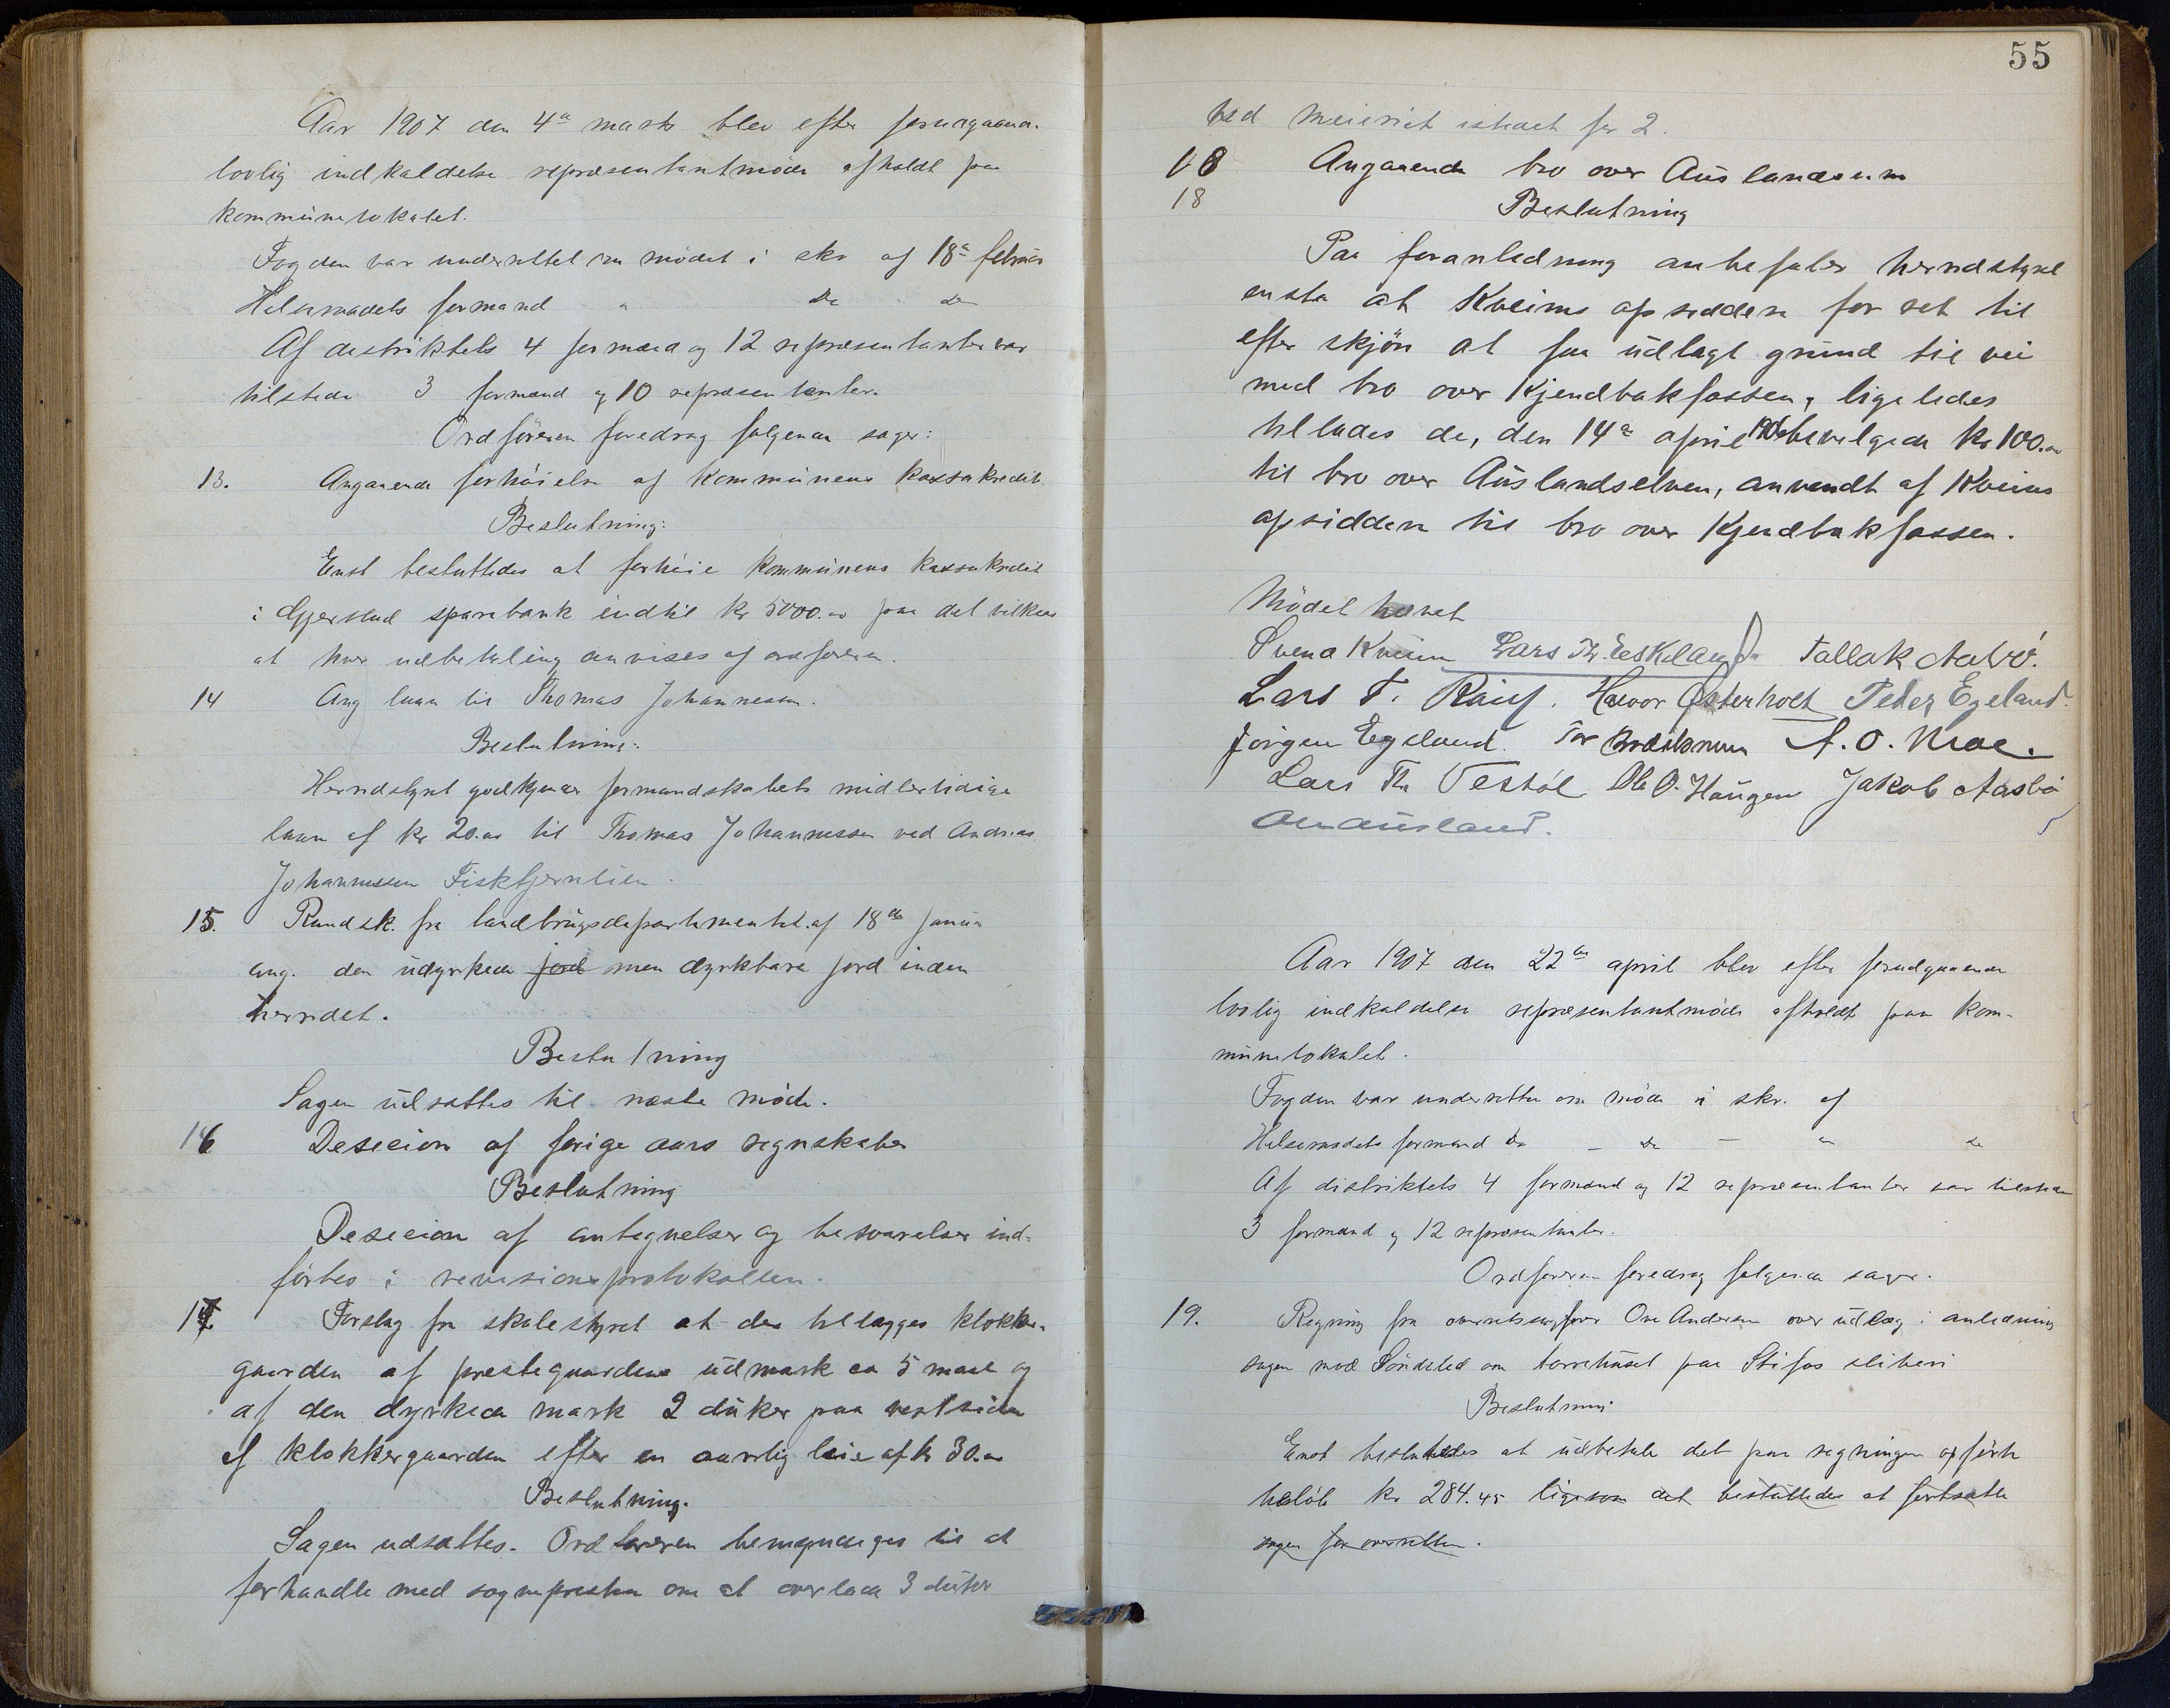 Aar 1907 den 4de marts blev efter forudgaaende
lovlig indkaldelse repræsentantmøde afholdt paa
kommunelokalet.
Fogden var underrettet om mødet i skr af 18de februar
Helseraadets formand " Do - Do
Af distriktets 4 formænd og 12 repræsentanter var
tilstede 3 formænd og 10 repræsentanter.
Ordføreren foredrog følgende sager:
13. Angaaende forhøielse af kommunens kassakredit.
Beslutning:
Enst besluttedes at forhøie kommunens kassakredit
i Gjerstad sparebank indtil kr 5000.00 paa det vilkaar
at hver udbetaling anvises af ordføreren.
14 Ang laan til Thomas Johannessen.
Beslutning:
Herredstyret godkjender formandskabets midlertidige
laan af kr 20.00 til Thomas Johannessen ved Andreas
Johannessen Fisktjernlien.
15. Rundsk. fra landbrugsdepartementet af 18de januar
ang. den udyrkede jord men dyrkbare jord inden
herredet.
Beslutning
Sagen udsattes til næste møde.
16 Desicion af forige aars regnskaber
Beslutning
Desicion af antegnelser og besvarelser ind-
førtes i revisionsprotokollen.
17. Forslag fra skolestyret at der tillægges klokker-
gaarden af prestegaardens udmark ca 5 maal og
af den dyrkede mark 2 duker paa vestsiden
af klokkergaarden efter en aarlig leie af kr 30.00
Beslutning.
Sagen udsattes. Ordføreren bemyndiges til at
forhandle med sognepresten om at overlade 3 duker
55
ved meieriet istedet for 2.
18 Angaaende bro over Auslandselven
18 Beslutning
Paa foranledning anbefaler herredstyret
enst. at Kveims opsiddere for ret til
efter skjøn at faa udlagt grund til vei
med bro over Kjendbakfossen, ligeledes
tillades de, den 14de april 1906 bevilgede kr 100.00
til bro over Auslandselven, anvendt af Kveims
opsiddere til bro over Kjendbakfossen.
Mødet hævet
Svena Kveim Lars Th. Eskeland Tallak Aabø.
Lars T. Røisl. Halvor Østerholt Peder Egeland.
Jørgen Egeland. Tor A. O. Moe.
Lars Th Vestøl Ole O. Haugen Jakob Aasbø
Ausland.
Aar 1907 den 22de april blev efter forudgaaende
lovlig indkaldelse repræsentantmøde afholdt paa kom-
munelokalet.
Fogden var underrettet om møde i skr. af
Helseraadets formand do - do - " do
Af distriktets 4 formænd og 12 repræsentanter var tilstede
3 formænd og 12 repræsentanter.
Ordføreren foredrog følgende sager.
19. Regning fra overretssagfører Ove Andersen over udlæg i anledning
sagen mod Søndeled om tørrehuset paa Stifos sliberi
Beslutning
Enst besluttedes at udbetale det paa regningen opførte
beløb kr 284.45 ligesom det besluttedes at fortsætte
sagen for overretten.